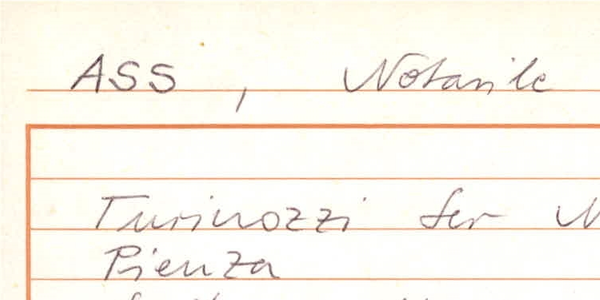 ASS, Notarile
Turinozzi Ser
Pienza